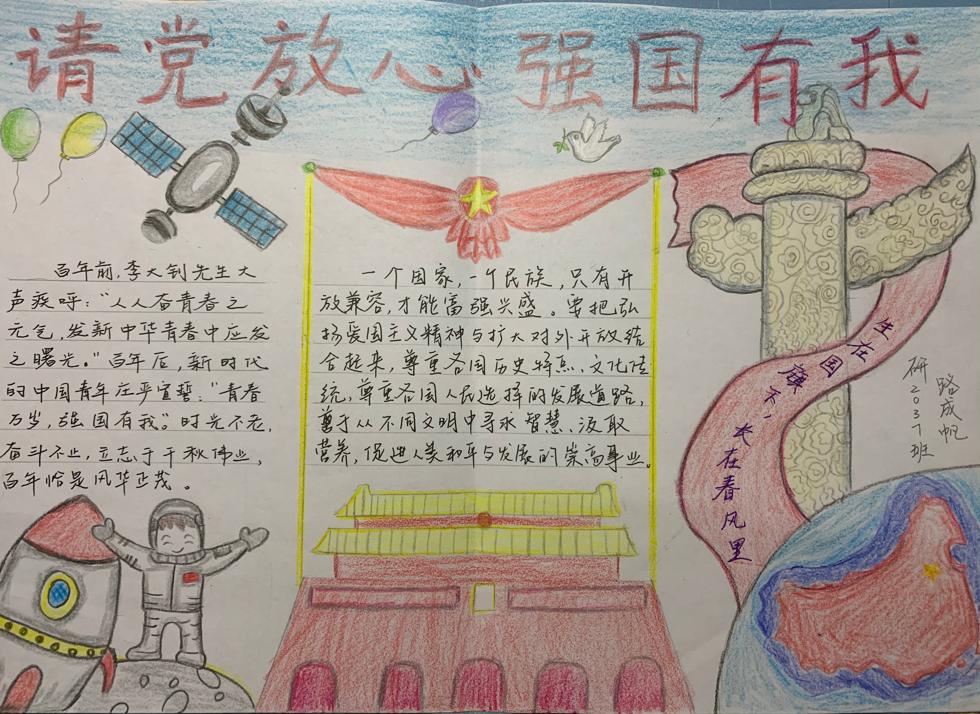 请党放心 强国有我
百年前，李大钊先生大
声疾呼：“人人奋青春之
元气，发新中华青春中应发
之曙光。”百年后，新时代
的中国青年庄严宣誓：“青春
万岁，强国有我。”时光不老，
奋斗不止，立志于千秋伟业，
百年恰是风华正茂。
一个国家，一个民族，只有开
放兼容，才能富强兴盛。要把弘
扬爱国主义精神与扩大对外开放结
合起来，尊重各国历史特点、文化传
统，尊重各国人民选择的发展道路，
善于从不同文明中寻求智慧、汲取
营养，促进人类和平与发展的崇高事业。
生在国旗下，长在春风里
研2037班
路成帆